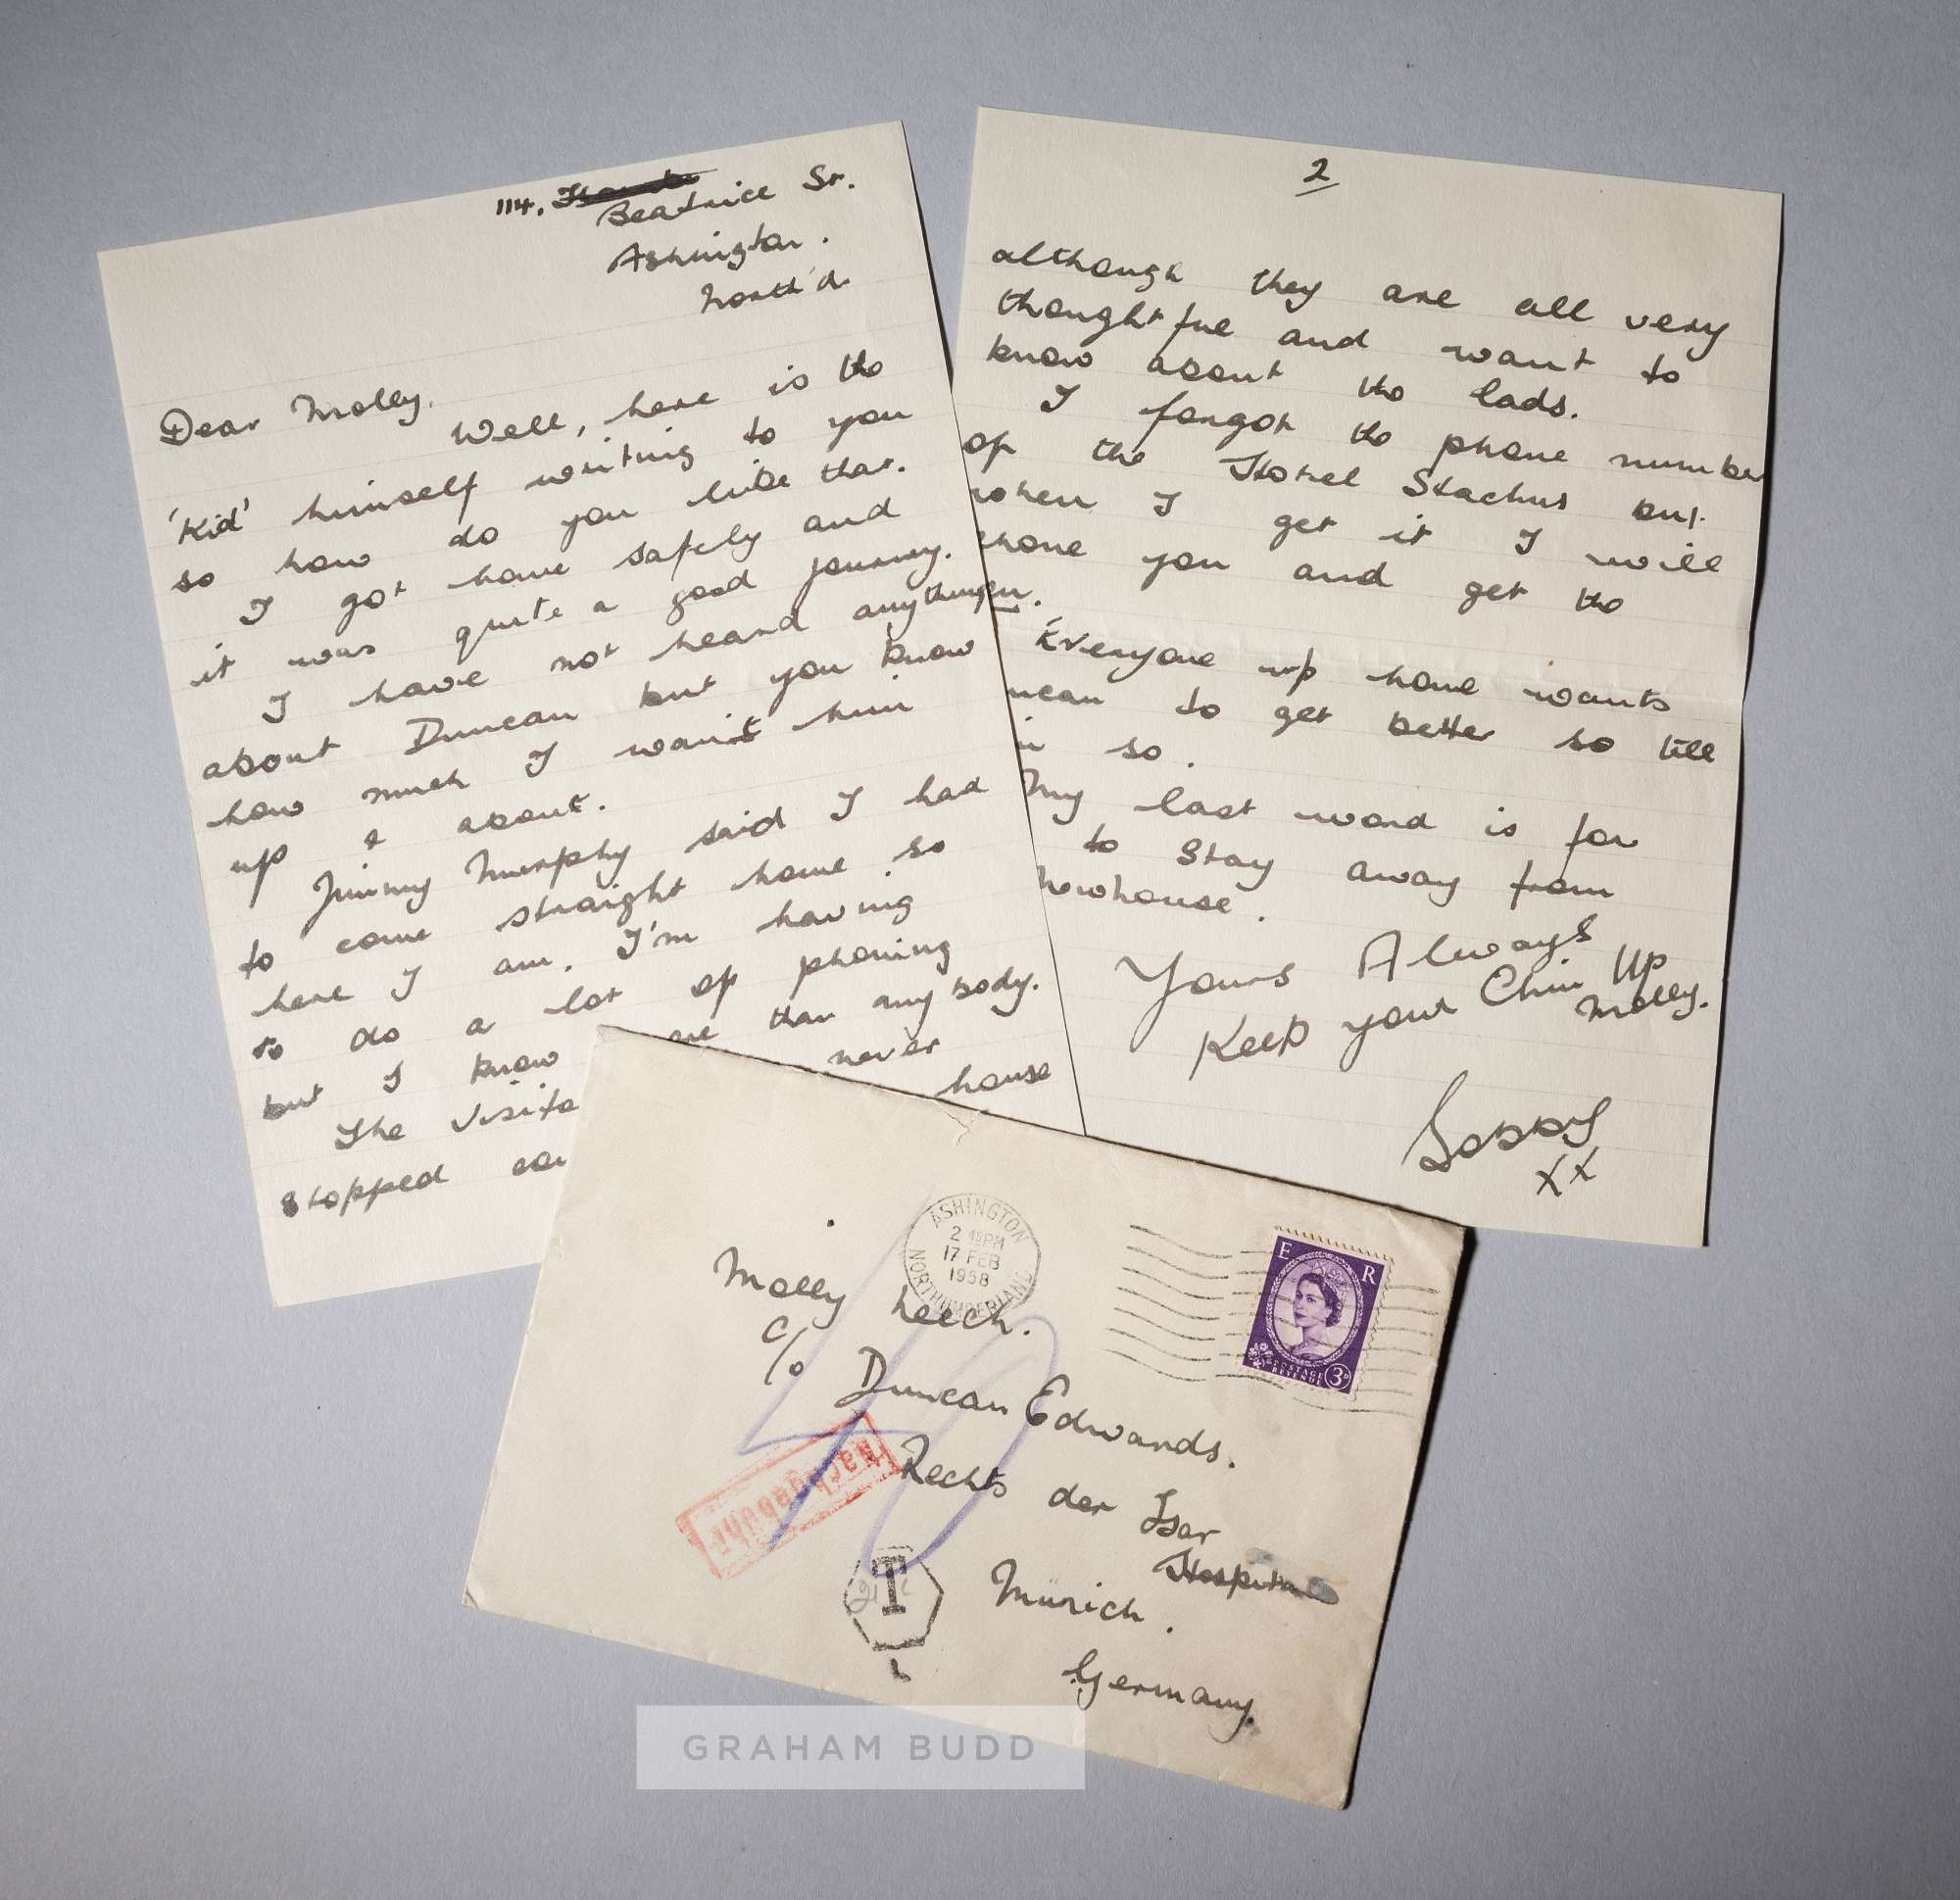 114, Beatrice St.
Ashington.
North'd
Dear Molly.
Well, here is the
'Kid' himself writing to you
so how do you like that.
I got home safely and
it was quite a good journey.
I have not heard anything
about Duncan but you know
how much I want him
up & about.
Jimmy Murphy said I had
to come straight home so
here I am. I'm having
to do a lot of phoning
but I know than anybody.
The never
stopped house
2
although they are all very
thoughtful and want to
know about the lads.
I forgot the phone number
of the Hotel Stachus but
when I get it I will
phone you and get the
Everyone up home wants
to get better so tell
so.
My last word is for
to stay away from
Yours Always
Keep your Chin Up
Molly.
Bobby
XX
ASHINGTON
2 45PM
17 FEB
1958
NORTHUMBERLAND
E R
POSTAGE
REVENUE
3D
Molly Leech.
C/o
Duncan Edwards.
Rechts der Isar
Hospital
Munich.
Germany.
Nachgebühr
40
T
L
GRAHAM BUDD